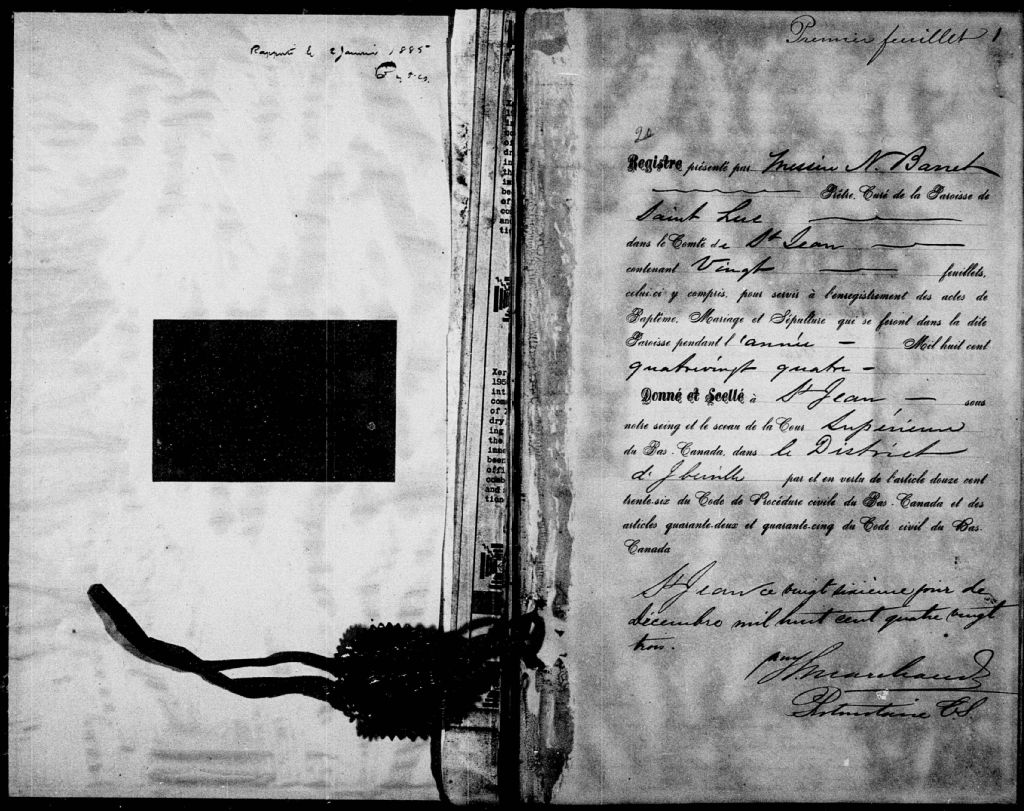 Rapporté le 2 Janvier 1885
Premier feuillet 1
20
Registre présenté par Messire N. Barret
Prêtre, Curé de la Paroisse de
Saint Luc
dans le Comté de St Jean
contenant Vingt feuillets,
celui-ci y compris, pour servir à l'enregistrement des actes de
Baptême, Mariage et Sépulture qui se feront dans la dite
Paroisse pendant l'année Mil huit cent
quatrevingt quatre
Donné et Scellé à St Jean sous
notre seing et le sceau de la Cour Supérieure
du Bas-Canada, dans le District
d'Iberville par et en vertu de l'article douze cent
trente-six du Code de Procédure civile du Bas-Canada et des
articles quarante-deux et quarante-cinq du Code civil du Bas-
Canada
St Jean ce vingt sixieme jour de
décembre mil huit cent quatre vingt
trois.
Marchand
Protonotaire C.S.